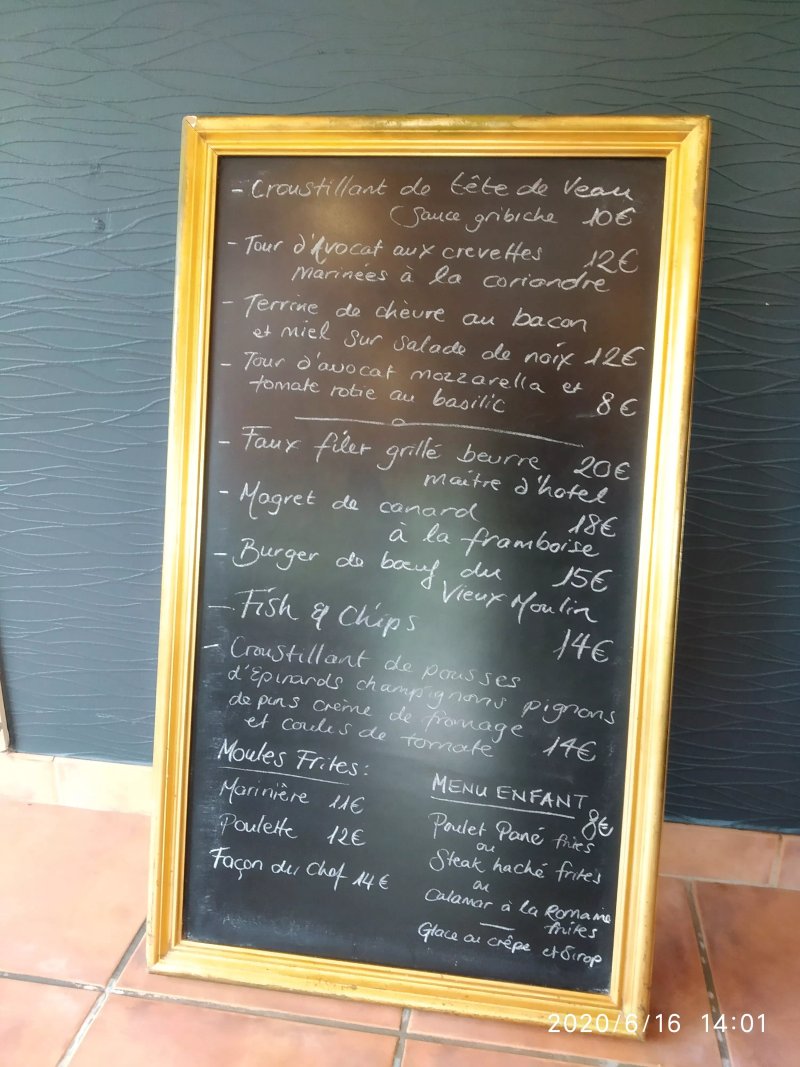 - Croustillant de tête de Veau
Sauce gribiche 10€
- Tour d'Avocat aux crevettes 12€
marinées à la coriandre
- Terrine de chèvre au bacon
et miel sur salade de noix 12€
- Tour d'avocat mozzarella et
tomate rotie au basilic 8€
- Faux filet grillé beurre 20€
maître d'hotel
- Magret de canard 18€
à la framboise
- Burger de bœuf du 15€
Vieux Moulin
- Fish & Chips 14€
- Croustillant de pousses
d'Epinards champignons pignons
de pins crème de fromage
et coulis de tomate 14€
Moules Frites:
Marinière 11€
Poulette 12€
Façon du Chef 14€
MENU ENFANT
8€
Poulet Pané frites
ou
Steak haché frites
ou
Calamar à la Romaine
frites
Glace ou crêpe et Sirop
2020/6/16 14:01